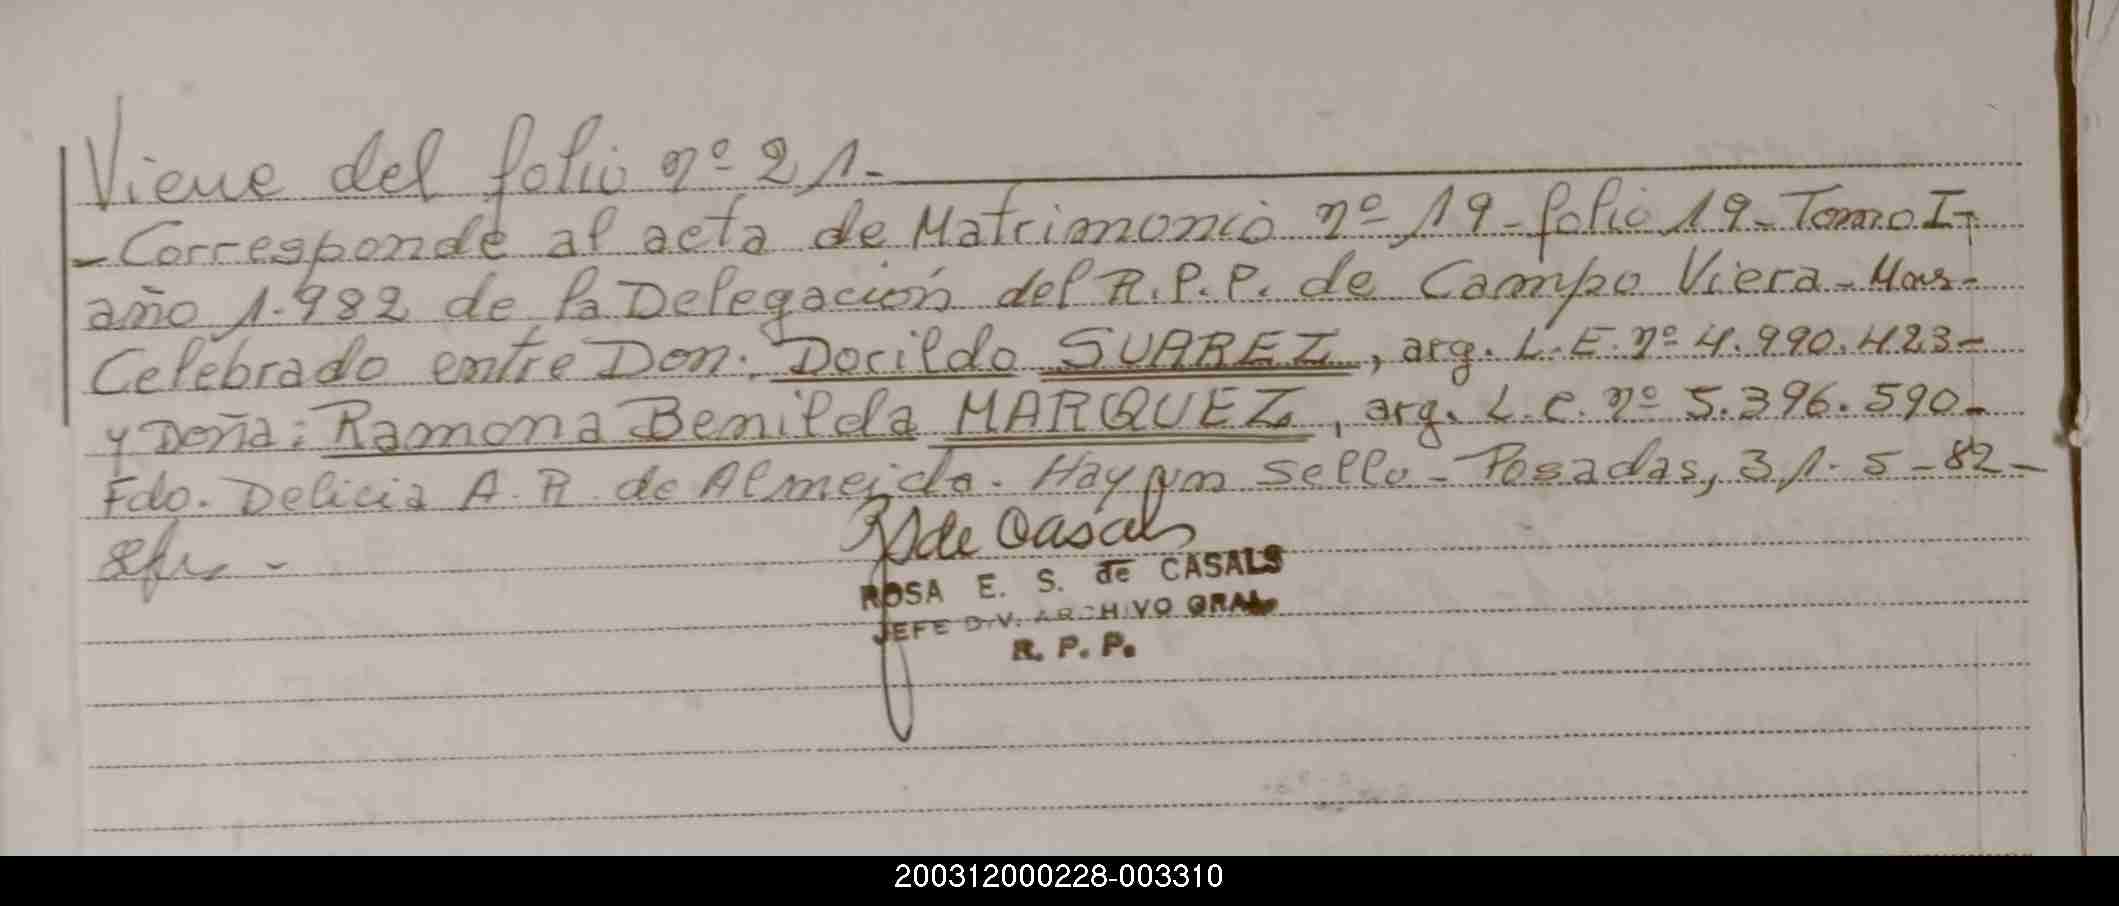 Viene del folio nº 21.-
- Corresponde al acta de Matrimonio nº 19 - folio 19 - Tomo I -
año 1.982 de la Delegación del R.P.P. de Campo Viera -
Celebrado entre Don: Docildo SUAREZ, arg. L.E. nº 4.990.423 -
y Doña: Ramona Benilda MARQUEZ, arg. L.C. nº 5.396.590 -
Fdo. Delicia A. R. de Almeida. Hay un sello - Posadas, 31-5-82 -
de Casals
ROSA E. S. de CASALS
JEFE DIV. ARCHIVO GRAL.
R. P. P.
200312000228-003310